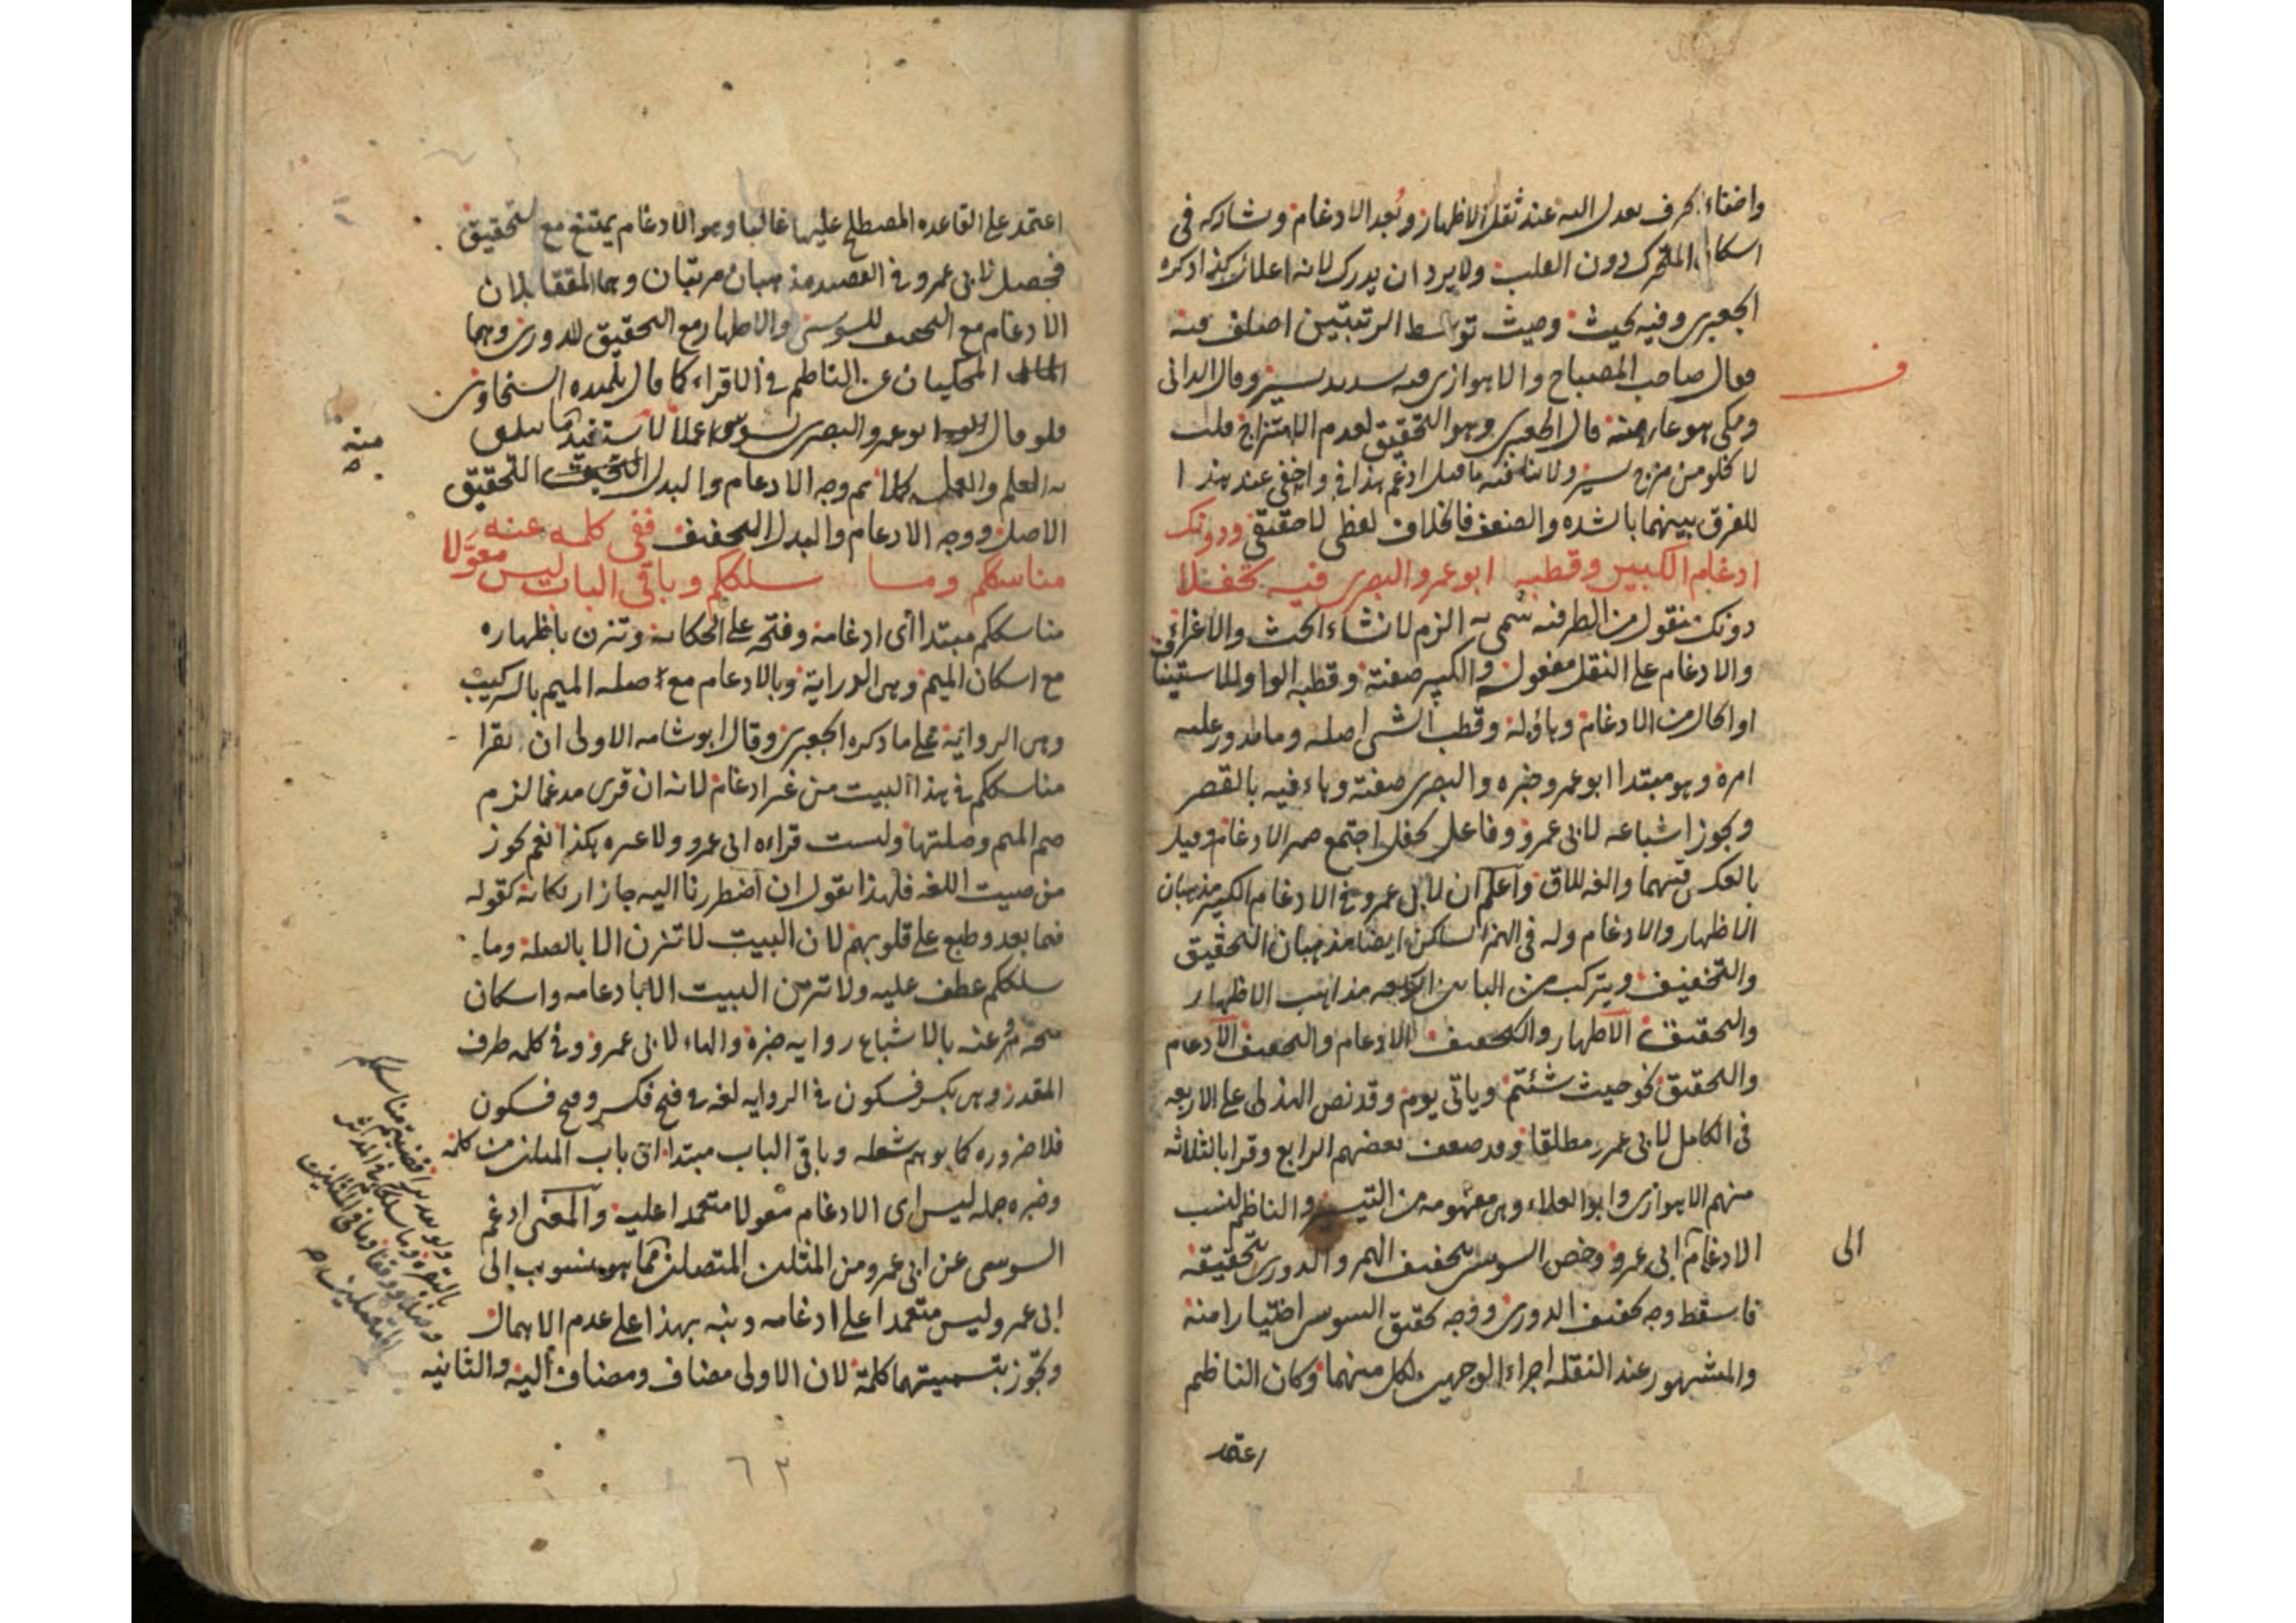 واخفاء الحرف بعدل اليه عند ثقل الاظهار وبُعد الادغام وشاركه في
اسكان المتحرك دون القلب ولا يرد ان يدرك لانه اعلال كذا ذكره
الجعبرى وفيه بحيث وحيث توسط الرتبتين اختلف فيه
فقال صاحب المصباح والاهوازى فيه تشديد يسير وقال الدانى
ومكى هو عار منه قال الجعبرى وهو التحقيق لعدم الامتزاج قلت
لا يخلو من مزج يسير ولا ينافيه ما قيل ادغم هذا في واخفي عند هذا
للفرق بينهما بالشدة والضعف فالخلاف لفظى لا حقيقى ودونك
ادغام الكبير وقطبه ابو عمرو البصرى فيه تحفلا
دونك منقول من الظرفية سمى به الزم لانشاء الحث والاغراء
والادغام على النقل مفعوله والكبير صفته وقطبه الواو للاستيناف
او الحال من الادغام وهاؤه له وقطب الشئ اصله وما يدور عليه
امره وهو مبتدا ابو عمرو خبره والبصرى صفته وهاء فيه بالقصر
ويجوز اشباعه لابى عمرو وفاعل تحفل اجتمع ضمير الادغام وقيل
بالعكس فيهما والفه للاق واعلم ان لابى عمرو في الادغام الكبير مذهبان
الاظهار والادغام وله فى الهمز الساكن ايضا مذهبان التحقيق
والتخفيف ويتركب من البابين اربعة مذاهب الاظهار
والتحقيق الاظهار والتخفيف الادغام والتخفيف الادغام
والتحقيق نحو حيث شئتم وياتى يوم وقد نص الهذلى على الاربعه
فى الكامل لابى عمرو مطلقا وقد ضعف بعضهم الرابع وقرا بالثلاثه
منهم الاهوازى وابو العلاء وهى مفهومه من التيسير والناظم لنسب
الادغام ابى عمرو وخص السوسى بتخفيف الهمز والدورى بتحقيقه
الى
فاسقط وجه تخفيف الدورى ووجه تحقيق السوسى اختيارا منه
والمشهور عند النقله اجراء الوجهين لكل منهما وكان الناظم
اعتمد
اعتمد على القاعده المصطلح عليها غالبا وهو الادغام يمتنع مع التحقيق
فحصل لابى عمرو في القصيد مذهبان مرتبان وهما المتقابلان
الادغام مع التخفيف للسوسى والاظهار مع التحقيق للدورى وهما
المحكيان عن الناظم في الاقراء كما قال تلميذه السخاوى
فلو قال ابو عمرو البصرى لسوس اعملا لاستفيد ما سبق
منه
به العلم والعمل ثم وجه الادغام والبدل التحقيق
الاصل ووجه الادغام والبدل التخفيف ففى كلمه عنه
مناسككم وما سلككم وباقى الباب ليس معوَّلا
مناسككم مبتدا أى ادغامه وفتحه على الحكاية وتزن باظهاره
مع اسكان الميم وهى الدراية وبالادغام مع صلة الميم بالتركيب
وهى الرواية على ما ذكره الجعبرى وقال ابو شامه الاولى ان يقرا
مناسككم في هذا البيت من غير ادغام لانه ان قرى مدغما لزم
ضم الميم وصلتها وليست قراءه ابى عمرو ولا غيره هكذا نعم يجوز
من حيث اللغه فلهذا نقول ان اضطررنا اليه جاز ارتكابه كقوله
فيما بعد وطبع على قلوبهم لان البيت لا تتزن الا بالصله وما
سلككم عطف عليه ولا تتزن البيت الا بادغامه واسكان
عنه بالاشباع روايه خبره والهاء لابى عمرو وفى كلمه ظرف
المقدر وهى بكسر فسكون في الروايه لغه في فتح فكسر وفتح فسكون
فلا ضروره كما يوهم شعله وباقى الباب مبتدا اى باب المثلين من كلمه
وخبره جمله ليس اى الادغام معولا متعمدا عليه والمعنى ادغم
السوسى عن ابى عمرو من المثلين المتصلين مما هو منسوب الى
ابى عمرو وليس متعمدا على ادغامه ونبه بهذا على عدم الاهمال
وتجوز بتسميتهما كلمة لان الاولى مضاف ومضاف اليه والثانيه
٦٣